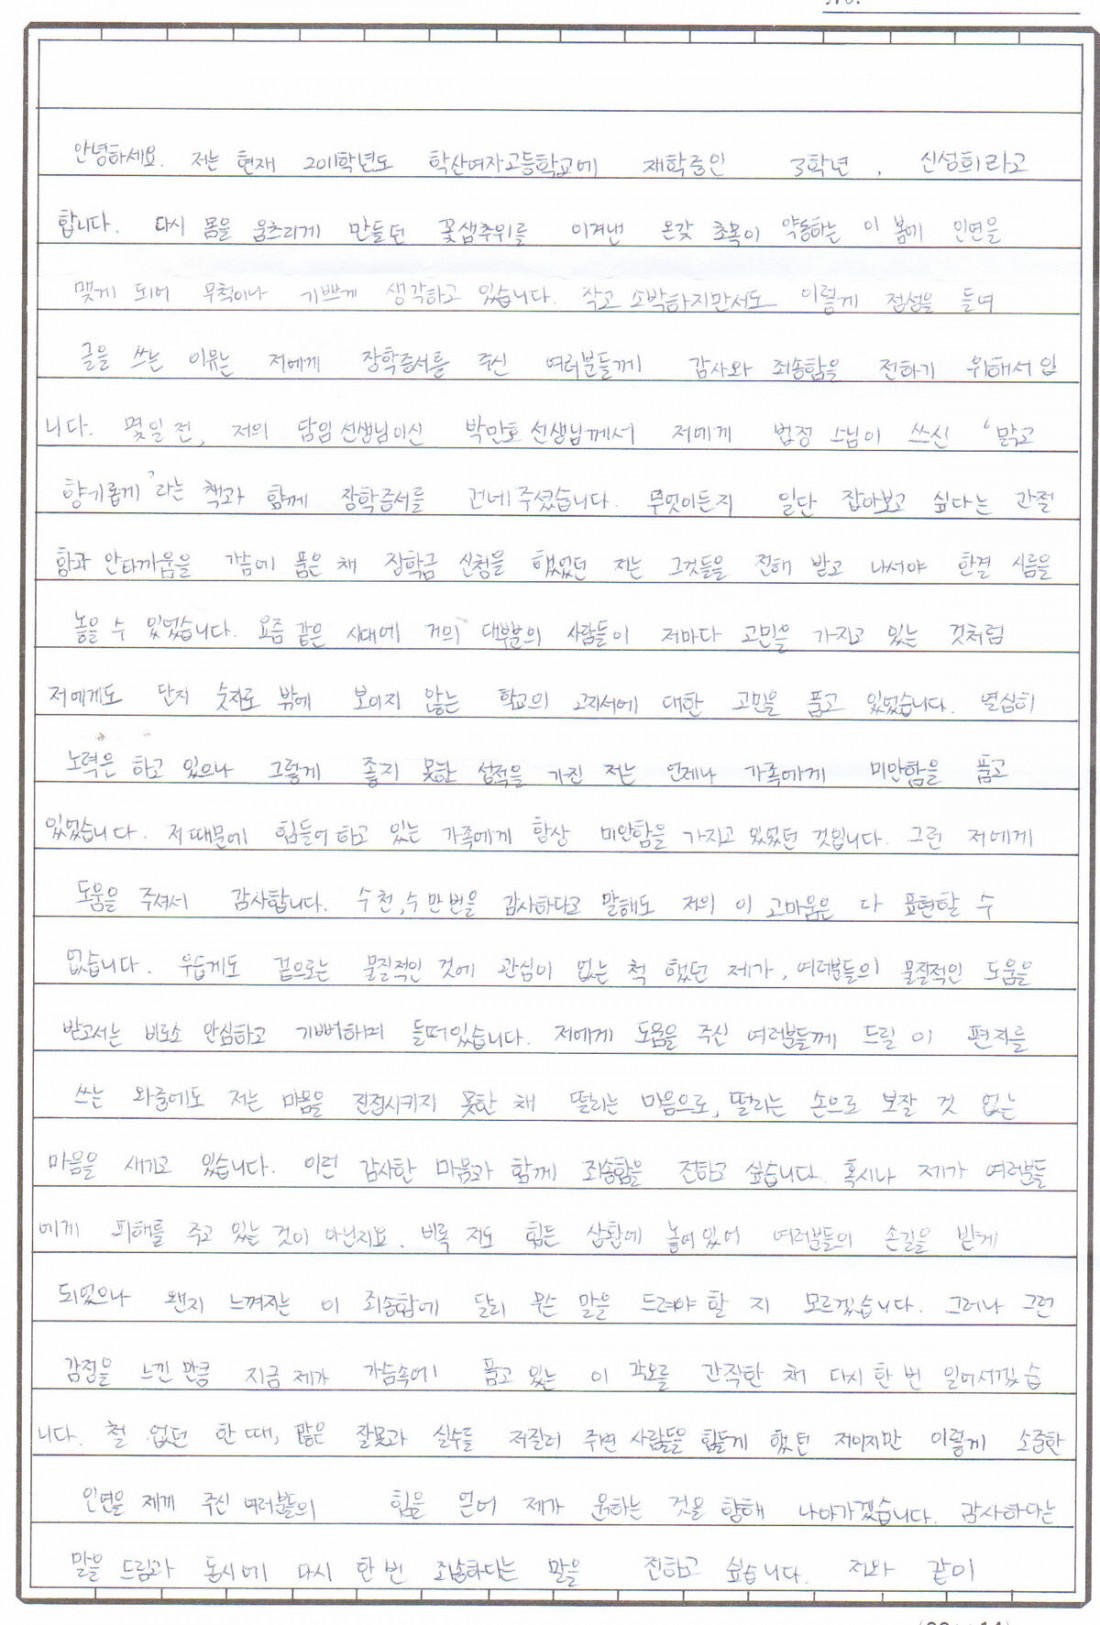 No.
안녕하세요. 저는 현재 2011학년도 학산여자고등학교에 재학중인 3학년, 신성희라고
합니다. 다시 몸을 움츠리게 만들던 꽃샘추위를 이겨낸 온갖 초목이 약동하는 이 봄에 인연을
맺게 되어 무척이나 기쁘게 생각하고 있습니다. 작고 소박하지만서도 이렇게 정성을 들여
글을 쓰는 이유는 저에게 장학증서를 주신 여러분들께 감사와 죄송함을 전하기 위해서 입
니다. 몇일 전, 저의 담임 선생님이신 박만호 선생님께서 저에게 법정 스님이 쓰신 '맑고
향기롭게'라는 책과 함께 장학증서를 건네 주셨습니다. 무엇이든지 일단 잡아보고 싶다는 간절
함과 안타까움을 가슴에 품은 채 장학금 신청을 했었던 저는 그것들을 전해 받고 나서야 한결 시름을
놓을 수 있었습니다. 요즘 같은 시대에 거의 대부분의 사람들이 저마다 고민을 가지고 있는 것처럼
저에게도 단지 숫자로 밖에 보이지 않는 학교의 고지서에 대한 고민을 품고 있었습니다. 열심히
노력은 하고 있으나 그렇게 좋지 못한 성적을 가진 저는 언제나 가족에게 미안함을 품고
있었습니다. 저 때문에 힘들어 하고 있는 가족에게 항상 미안함을 가지고 있었던 것입니다. 그런 저에게
도움을 주셔서 감사합니다. 수천, 수만번을 감사하다고 말해도 저의 이 고마움은 다 표현할 수
없습니다. 우습게도 겉으로는 물질적인 것에 관심이 없는 척 했던 제가, 여러분들의 물질적인 도움을
받고서는 비로소 안심하고 기뻐하며 들떠있습니다. 저에게 도움을 주신 여러분들께 드릴 이 편지를
쓰는 와중에도 저는 마음을 진정시키지 못한 채 떨리는 마음으로, 떨리는 손으로 보잘 것 없는
마음을 새기고 있습니다. 이런 감사한 마음과 함께 죄송함을 전하고 싶습니다. 혹시나 제가 여러분들
에게 피해를 주고 있는 것이 아닌지요. 비록 저도 힘든 상황에 놓여 있어 여러분들의 손길을 받게
되었으나 왠지 느껴지는 이 죄송함에 달리 무슨 말을 드려야 할 지 모르겠습니다. 그러나 그런
감정을 느낀 만큼 지금 제가 가슴속에 품고 있는 이 각오를 간직한 채 다시 한 번 일어서겠습
니다. 철 없던 한 때, 많은 잘못과 실수들 저질러 주변 사람들을 힘들게 했던 저이지만 이렇게 소중한
인연을 제게 주신 여러분들의 힘을 얻어 제가 원하는 것을 향해 나아가겠습니다. 감사하다는
말을 드림과 동시에 다시 한 번 죄송하다는 말을 전하고 싶습니다. 저와 같이